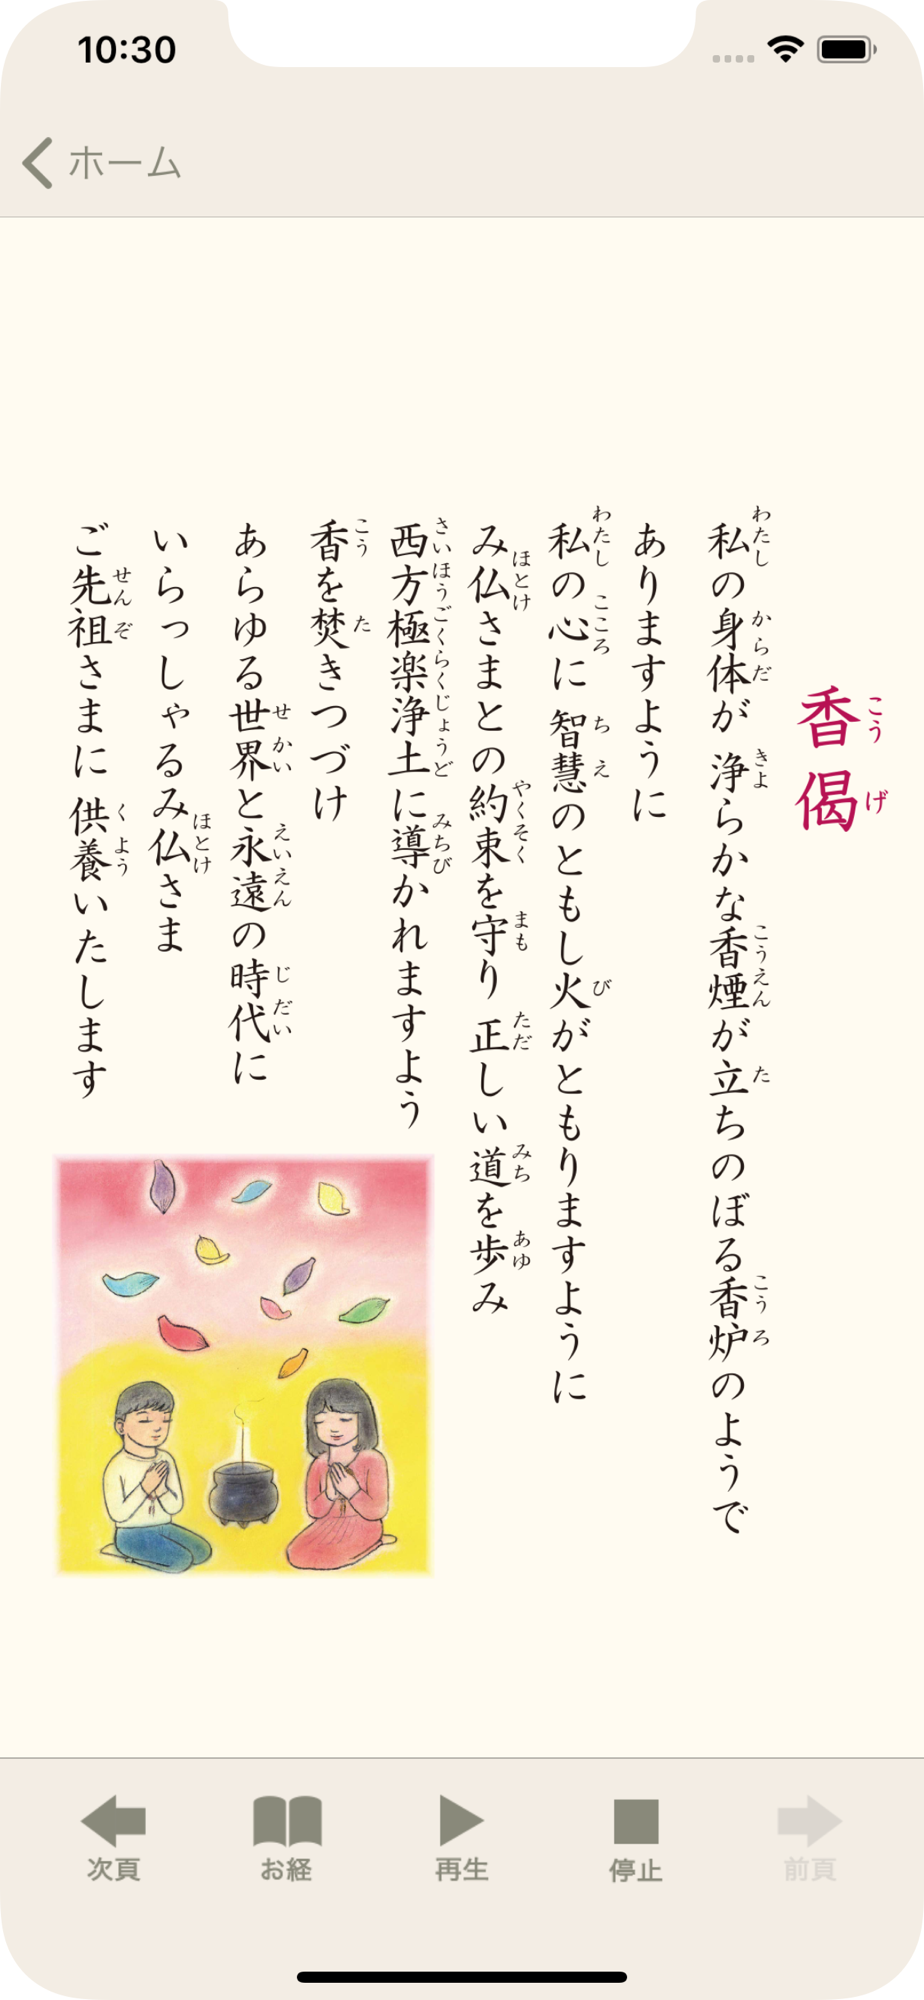 10:30
ホーム
香偈
こうげ
私の身体が 浄らかな香煙が立ちのぼる香炉のようで
わたし からだ きよ こうえん た こうろ
ありますように
私の心に 智慧のともし火がともりますように
わたし こころ ちえ び
み仏さまとの約束を守り 正しい道を歩み
ほとけ やくそく まも ただ みち あゆ
西方極楽浄土に導かれますよう
さいほうごくらくじょうど みちび
香を焚きつづけ
こう た
あらゆる世界と永遠の時代に
せかい えいえん じだい
いらっしゃるみ仏さま
ほとけ
ご先祖さまに 供養いたします
せんぞ くよう
次頁
お経
再生
停止
前頁